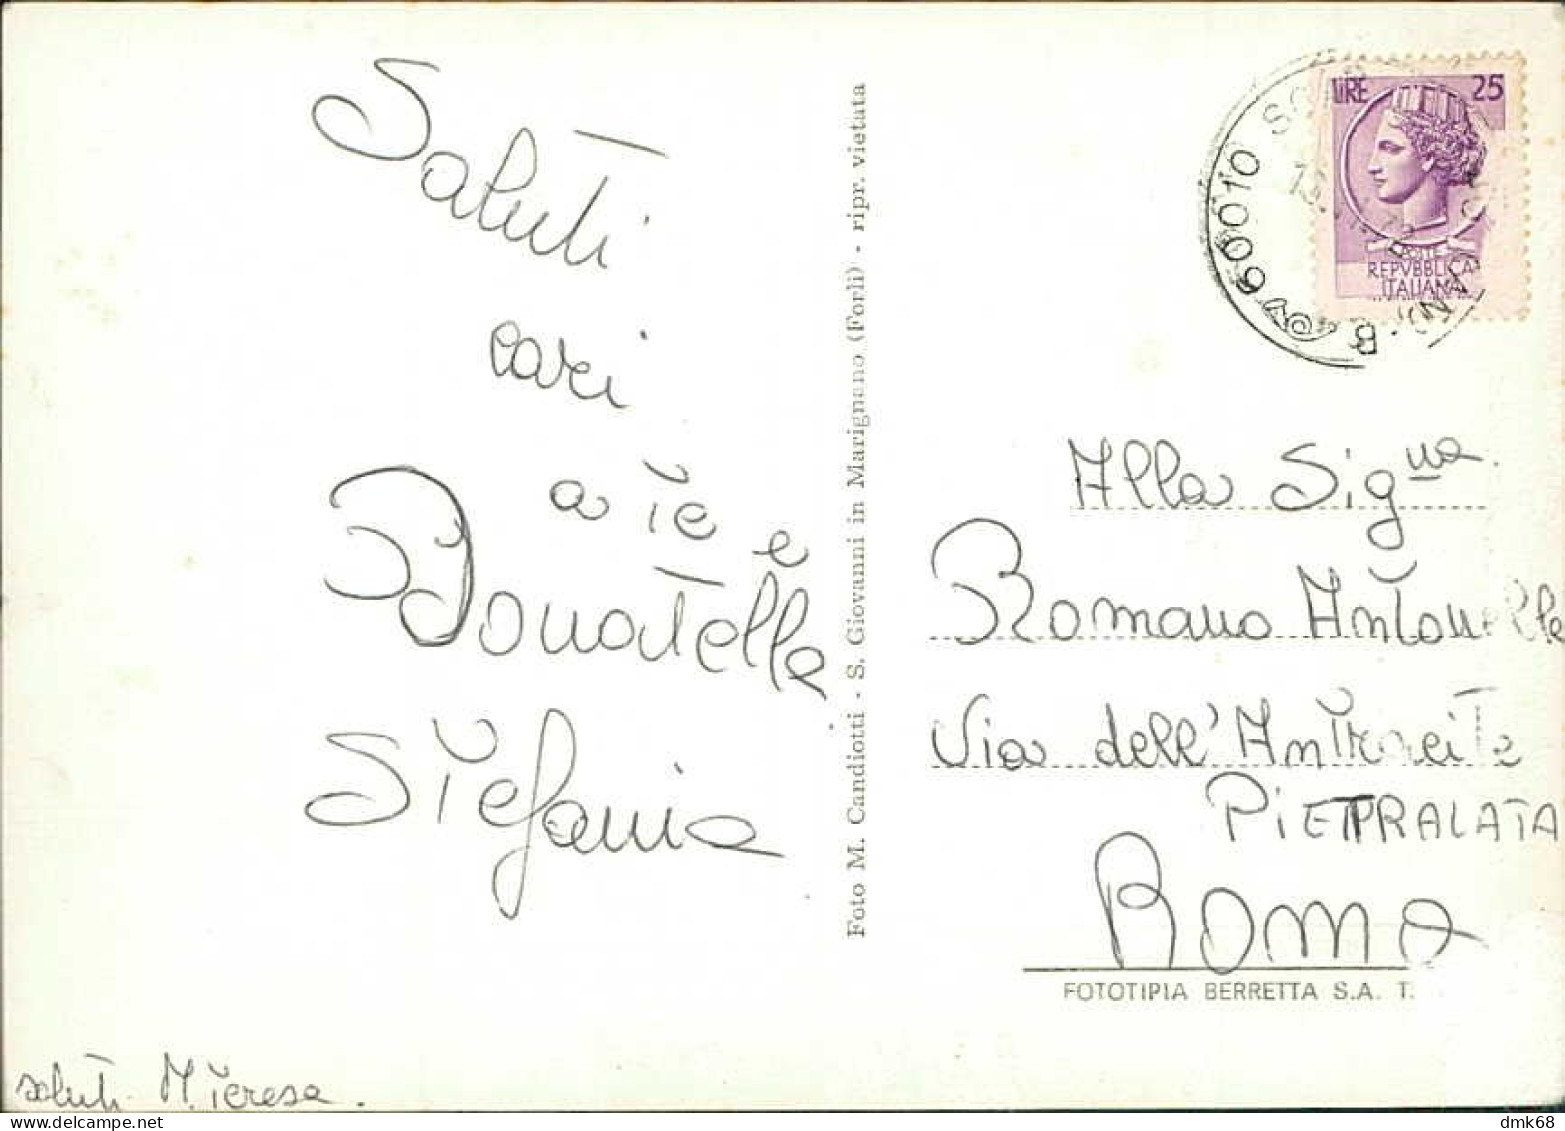 Saluti
cari
a te e
Donatella
Stefania
saluti M. Teresa.
Foto M. Candiotti - S. Giovanni in Marignano (Forlì) - ripr. vietata
LIRE 25
POSTE
REPVBBLICA
ITALIANA
60010
Alla Sig.na
Romano Antonella
Via dell'Antracite
PIETRALATA
ROMA
FOTOTIPIA BERRETTA S.A. T.
dmk68